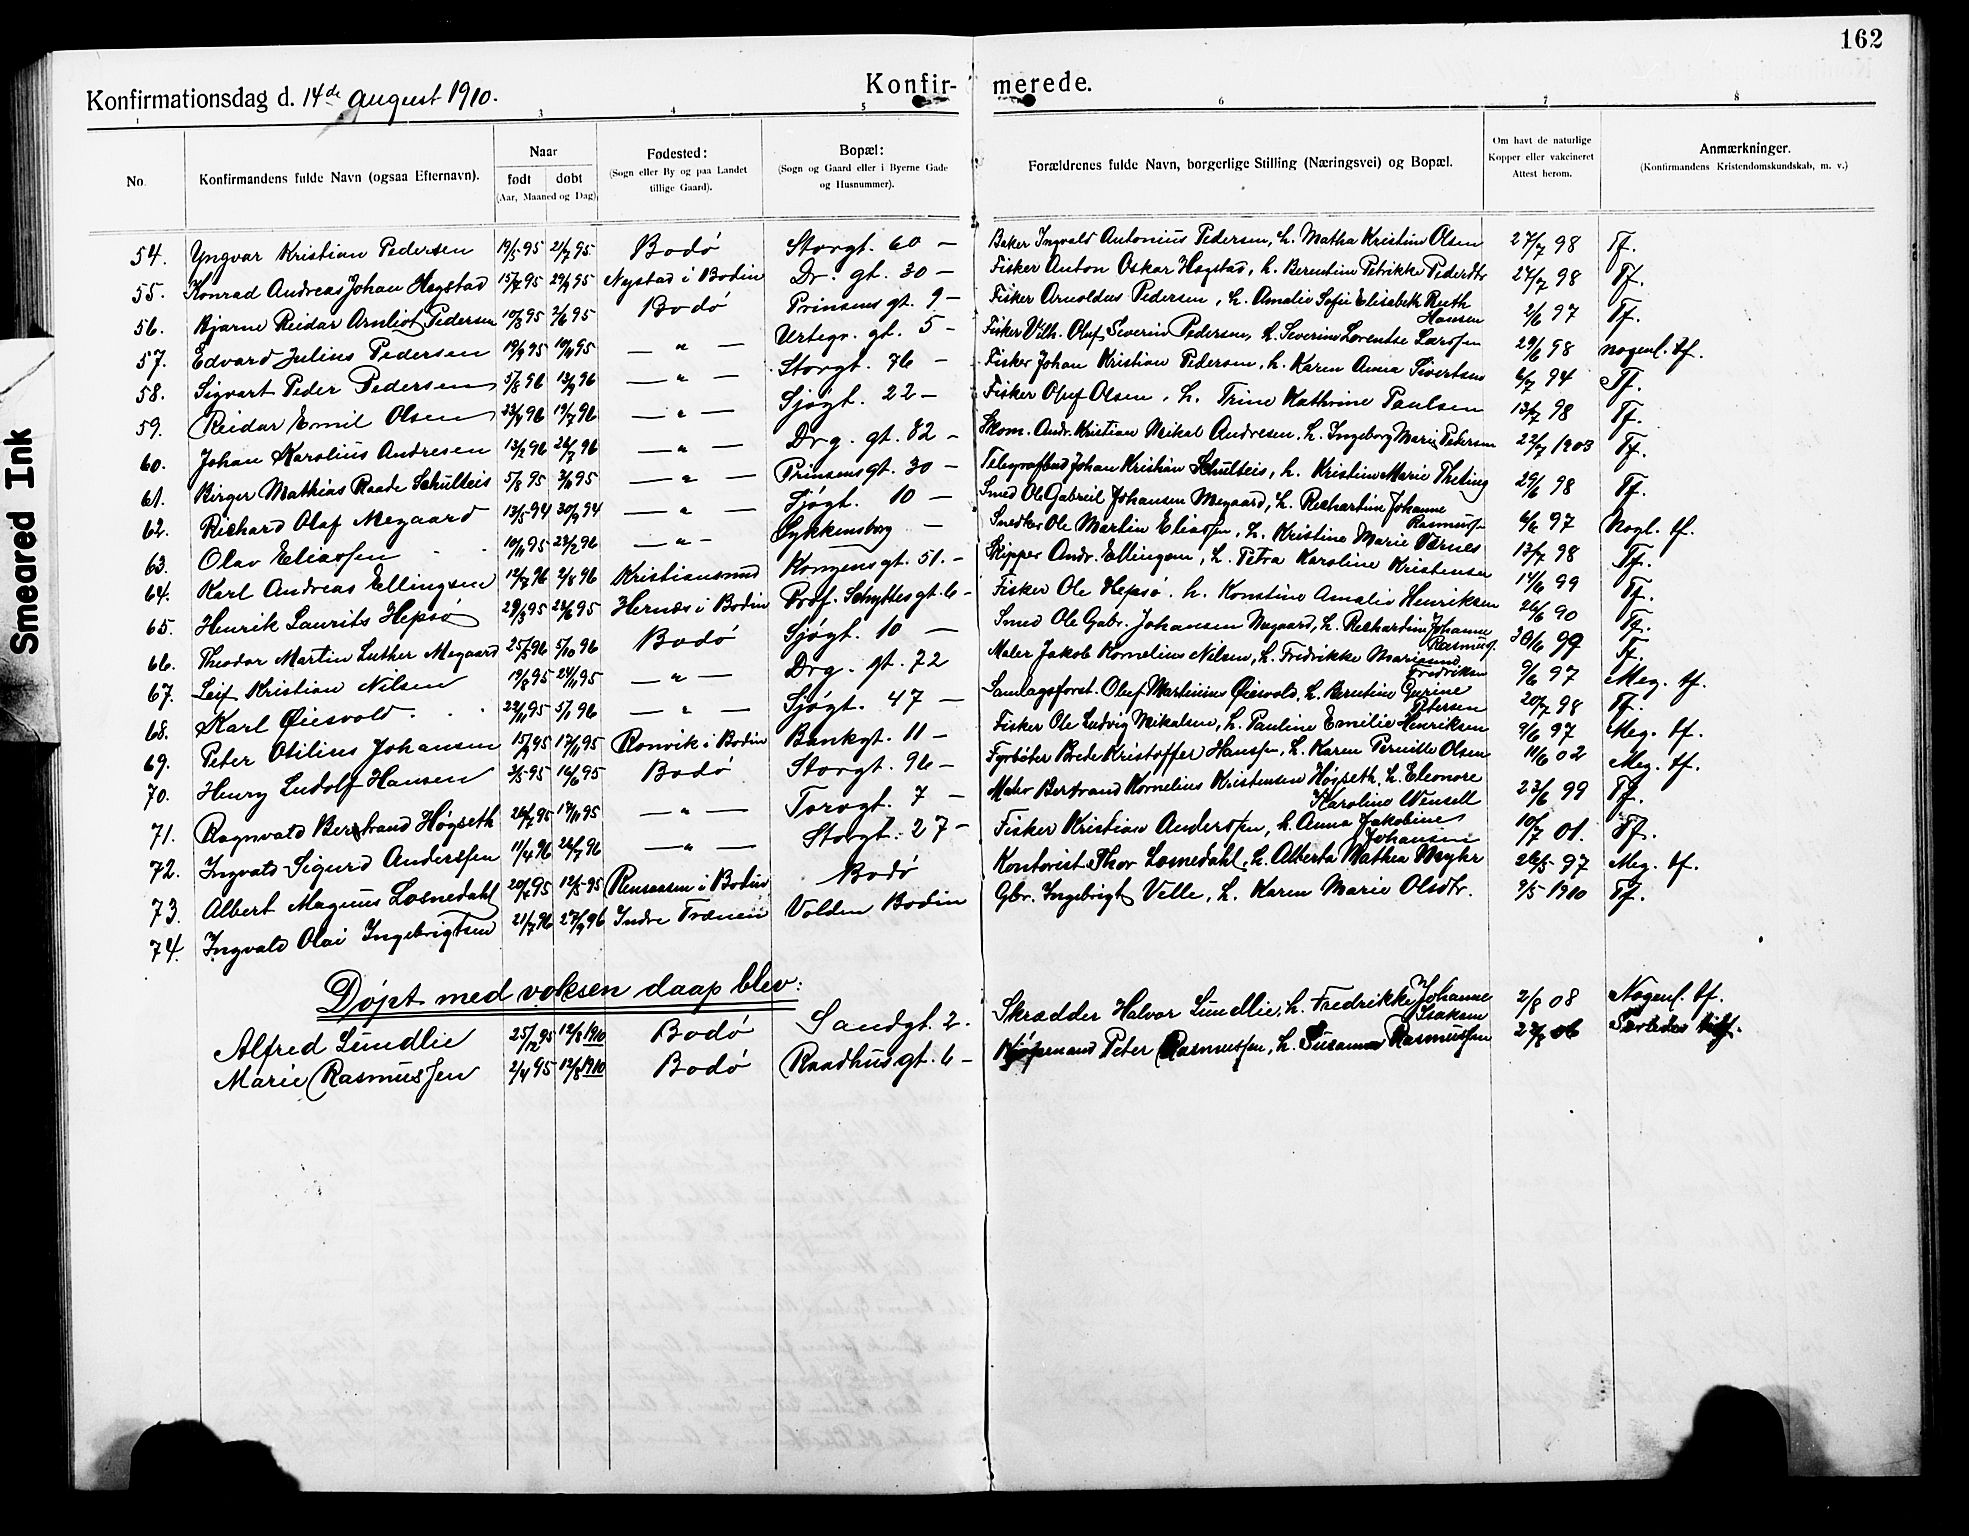 162
Smeared Ink
Konfirmationsdag d. 14de August 1910.
Konfir- merede.
1 3 4 5 6 7 8
No.
Konfirmandens fulde Navn (ogsaa Efternavn).
Naar
født døbt
(Aar, Maaned og Dag).
Fødested:
(Sogn eller By og paa Landet
tillige Gaard).
Bopæl:
(Sogn og Gaard eller i Byerne Gade
og Husnummer).
Forældrenes fulde Navn, borgerlige Stilling (Næringsvei) og Bopæl.
Om havt de naturlige
Kopper eller vakcineret
Attest herom.
Anmærkninger.
(Konfirmandens Kristendomskundskab, m. v.)
54. Yngvar Kristian Pedersen 19/5 95 21/7 95 Bodø Storgt. 60 – Baker Ingvald Antonius Pedersen, h. Matha Kristine Olsen 27/7 98 Tf.
55. Konrad Andreas Johan Hegstad 15/7 95 29/9 95 Nystad i Bodin Dr. gt. 30 – Fisker Anton Oskar Hegstad, h. Berentine Petrikke Pedersdtr 27/7 98 Tf.
56. Bjarne Reidar Arnliot Pedersen 10/3 95 2/6 95 Bodø Prinsens gt. 9 – Fisker Arnoldus Pedersen, h. Amalie Sofie Elisabeth Reuth Hansen 2/6 97 Tf.
57. Edvard Julius Pedersen 19/9 95 10/11 95 — " — Urtegr. gt. 5 – Fisker Vilh. Oluf Severin Pedersen, h. Severine Lorentse Larssen 29/6 98 nogenl. tf.
58. Sigvart Peder Pedersen 5/8 96 13/9 96 — " — Storgt. 76 – Fisker Johan Kristian Pedersen, h. Karen Anna Sivertsen 6/7 94 Tf.
59. Reidar Emil Olsen 23/4 96 19/7 96 — " — Sjøgt. 22 – Fisker Oluf Olsen, h. Trine Kathrine Paulsen 13/7 98 Tf.
60. Johan Karolius Andresen 13/2 96 26/7 96 — " — Drg. gt. 82 – Skom. Andr. Kristian Mikal Andresen, h. Ingeborg Marie Pedersen 22/7 1903 Tf.
61. Birger Mathias Raade Schulteis 5/8 95 3/11 95 — " — Prinsensgt. 30 – Telegrafbud Johan Kristian Schulteis, h. Kristine Marie Theting 29/6 98 Tf.
62. Richard Olaf Megaard 13/5 94 30/9 94 — " — Sjøgt. 10 – Smed Ole Gabreil Johansen Megaard, h. Rechardine Johanne Rasmuss. 6/6 97 Nogl. tf.
63. Olav Eliassen 10/11 95 23/2 96 — " — Lykkensborg – Snedker Ole Martin Eliassen, h. Kristine Marie Værnes 13/7 98 Tf.
64. Karl Andreas Ellingsen 12/2 96 2/8 96 Kristiansund Kongensgt. 51. – Skipper Andr. Ellingsen, h. Petra Karoline Kristensen 14/6 99 Tf.
65. Henrik Laurits Hepsø 29/3 95 23/6 95 Hernæs i Bodin Prof. Schyttesgt. 6 – Fisker Ole Hepsø, h. Konstine Amalie Henriksen 26/6 90 Tf.
66. Theodor Martin Luther Megaard 25/5 96 5/10 96 Bodø Sjøgt. 10 – Smed Ole Gabr. Johansen Megaard, h. Rechardine Johanne Rasmuss. 30/6 99 Tf.
67. Leif Kristian Nilsen 19/8 95 24/11 95 — " — Drg. gt. 72 Maler Jakob Kornelius Nilsen, h. Fredrikke Mariane Fredriksen 9/6 97 Meg. tf.
68. Karl Øiesvold. 22/11 95 5/1 96 — " — Sjøgt. 47 – Samlagsforst. Oluf Martinius Øiesvold, h. Berntine Gurine Petersen 20/7 98 Tf.
69. Peter Otilius Johansen 15/9 95 17/11 95 Rønvik i Bodin Bankgt. 11 – Fisker Ole Ludvig Mikalsen, h. Pauline Emilie Henriksen 9/6 97 Meg. tf.
70. Henry Ludolf Hansen 3/5 95 16/6 95 Bodø Storgt. 96 – Fyrbøter Brede Kristoffer Hanssen, h. Karen Pernille Olsen 11/6 02 Meg. tf.
71. Ragnvald Bertrand Høgseth 26/7 95 17/11 95 — " — Torvgt. 7 – Maler Bertrand Kornelius Kristensen Høgseth, h. Eleonore Karoline Wensell 23/6 99 Tf.
72. Ingvald Sigurd Anderssen 11/4 96 26/7 96 — " — Storgt. 27 – Fisker Kristian Anderssen, h. Anna Jakobine Johansen 10/7 01. Tf.
73. Albert Magnus Losnedahl 20/2 95 12/5 95 Rensaasen i Bodin Bodø Kontorist Thor Losnedahl, h. Alberta Mathea Myhr 26/5 97 Meg. tf.
74. Ingvald Olai Ingebrigtsen 21/7 96 27/9 96 Indre Trænen Volden Bodin Gbr. Ingebrigt Velle, h. Karen Marie Olsdtr. 9/5 1910 Tf.
Døpt med voksen daap blev:
Alfred Lundlie 25/12 95 12/8 1910 Bodø Sandgt. 2. Skrædder Halvor Lundlie, h. Fredrikke Johanne Isaksen 2/8 08 Nogenl. tf.
Marie Rasmussen 2/4 95 12/8 1910 Bodø Raadhusgt. 6 – Kjøpmand Peter Rasmussen, h. Susanna Rasmussen 06 Særledes